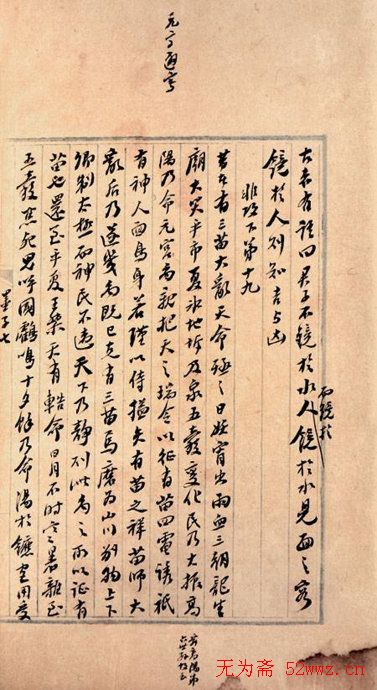 古者有語曰君子不鏡於水人鏡於水見面之容
而鏡於
鏡於人則知吉与凶
非攻下第十九
昔者有三苗大亂天命殛之日妖宵出雨血三朝龍生
廟犬哭乎市夏冰地坼及泉五穀變化民乃大振高
陽乃命元宮禹親把天之瑞令以征有苗四電誘祗
有神人面鳥身若瑾以侍搤矢有苗之祥苗師大
亂后乃遂幾禹既已克有三苗焉磨為山川別物上下
卿制大極而神民不違天下乃靜則此禹之所以征有
苗也還至乎夏王桀天有䡖命日月不時寒暑雜至
五穀焦死鬼呼國鶴鳴十夕餘乃命湯於鑣宮用受
墨子七
无为斋 52wwz.cn